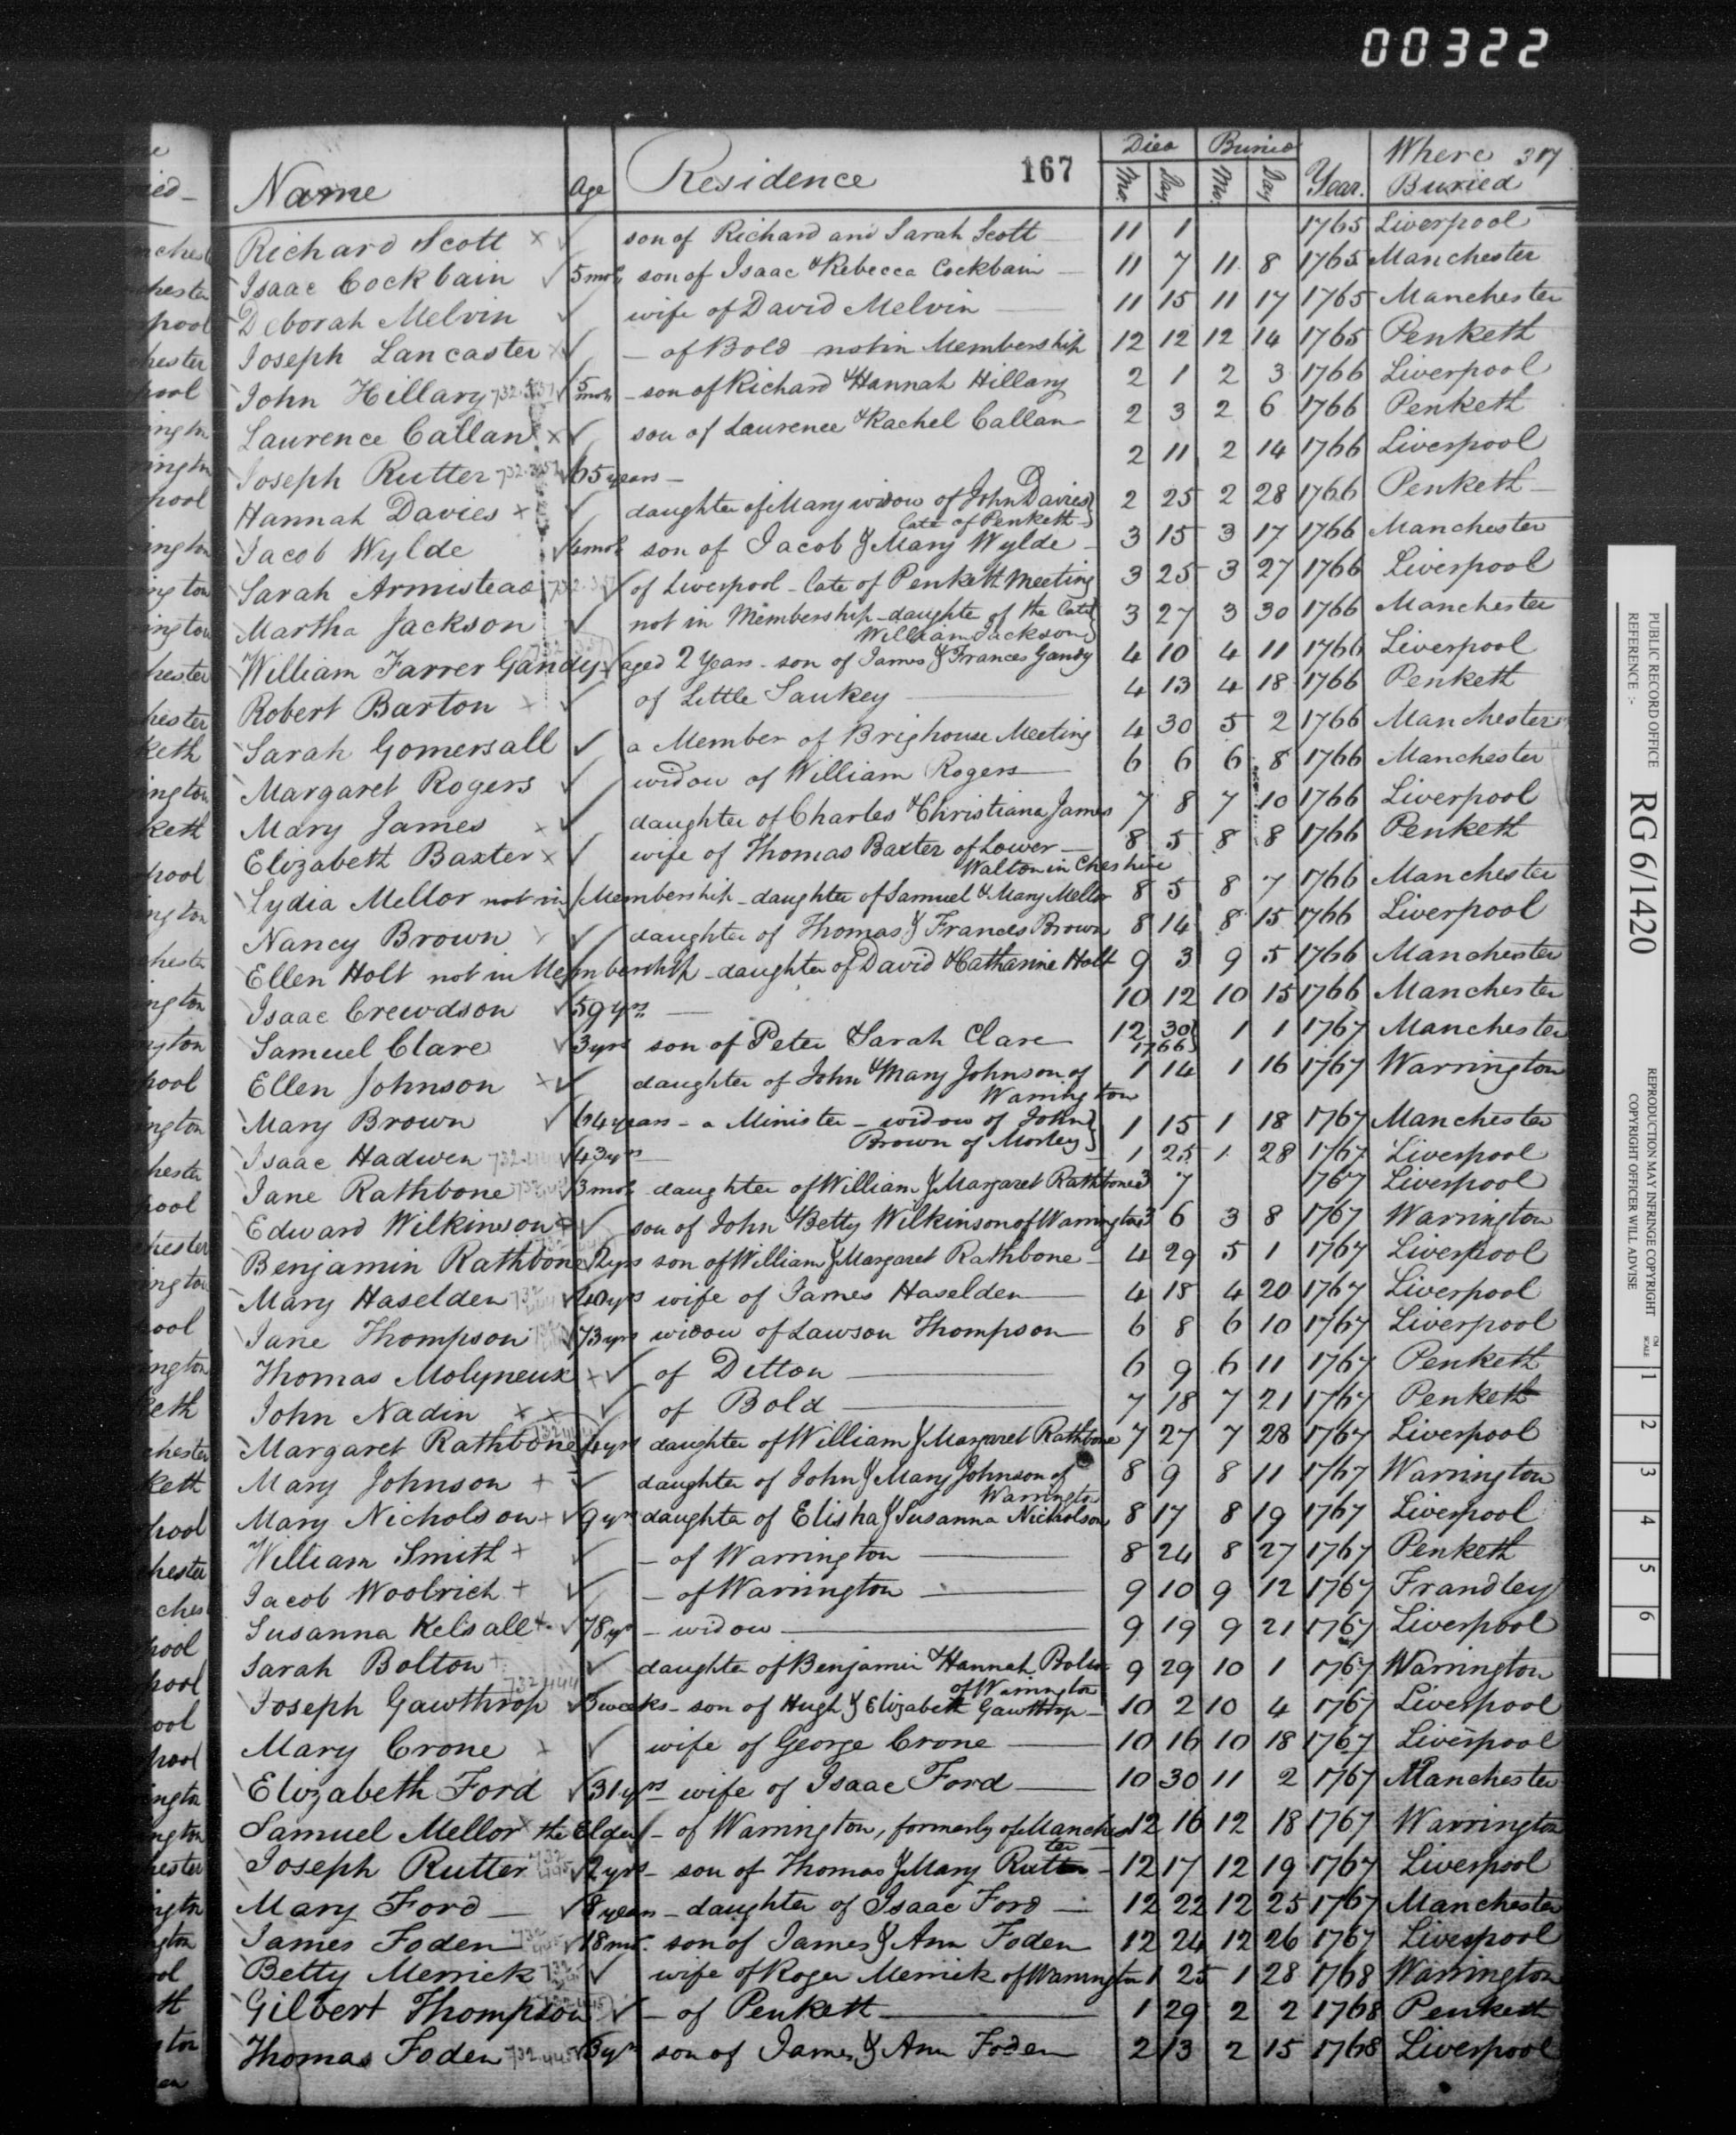 00322
Died Buried Where 317
Name Age Residence 167 Mo. Day Mo. Day Year. Buried
Richard Scott son of Richard and Sarah Scott 11 1 1765 Liverpool
Isaac Cockbain 5 mos son of Isaac & Rebecca Cockbain 11 7 11 8 1765 Manchester
Deborah Melvin wife of David Melvin 11 15 11 17 1765 Manchester
Joseph Lancaster - of Bold not in Membership 12 12 12 14 1765 Penketh
John Hillary 5 mos - son of Richard & Hannah Hillary 2 1 2 3 1766 Liverpool
Laurence Callan son of Laurence & Rachel Callan 2 3 2 6 1766 Penketh
Joseph Rutter 65 years - 2 11 2 14 1766 Liverpool
Hannah Davies daughter of Mary widow of John Davies 2 25 2 28 1766 Penketh
late of Penketh
Jacob Wylde 6 mos son of Jacob & Mary Wylde 3 15 3 17 1766 Manchester
Sarah Armistead of Liverpool - late of Penketh Meeting 3 25 3 27 1766 Liverpool
Martha Jackson not in Membership - daughter of the late 3 27 3 30 1766 Manchester
William Jackson
William Farrer Gandy aged 2 Years - son of James & Frances Gandy 4 10 4 11 1766 Liverpool
Robert Barton of Little Saukey 4 13 4 18 1766 Penketh
Sarah Gomersall a Member of Brighouse Meeting 4 30 5 2 1766 Manchester
Margaret Rogers widow of William Rogers 6 6 6 8 1766 Manchester
Mary James daughter of Charles & Christiana James 7 8 7 10 1766 Liverpool
Elizabeth Baxter wife of Thomas Baxter of Lower 8 5 8 8 1766 Penketh
Walton in Cheshire
Lydia Mellor not in Membership - daughter of Samuel & Mary Mellor 8 5 8 7 1766 Manchester
Nancy Brown daughter of Thomas & Frances Brown 8 14 8 15 1766 Liverpool
Ellen Holt not in Membership - daughter of David & Catharine Holt 9 3 9 5 1766 Manchester
Isaac Crewdson 59 yrs 10 12 10 15 1766 Manchester
Samuel Clare 3 yrs son of Peter & Sarah Clare 12 30 1 1 1767 Manchester
1766
Ellen Johnson daughter of John & Mary Johnson of 1 14 1 16 1767 Warrington
Warrington
Mary Brown 64 years - a Minister - widow of John 1 15 1 18 1767 Manchester
Brown of Morley
Isaac Hadwen 43 yrs 1 25 1 28 1767 Liverpool
Jane Rathbone 3 mos daughter of William & Margaret Rathbone 3 7 1767 Liverpool
Edward Wilkinson son of John & Betty Wilkinson of Warrington 3 6 3 8 1767 Warrington
Benjamin Rathbone 2 yrs son of William & Margaret Rathbone 4 29 5 1 1767 Liverpool
Mary Haselden 40 yrs wife of James Haselden 4 18 4 20 1767 Liverpool
Jane Thompson 73 yrs widow of Lawson Thompson 6 8 6 10 1767 Liverpool
Thomas Molyneux of Ditton 6 9 6 11 1767 Penketh
John Nadin of Bold 7 18 7 21 1767 Penketh
Margaret Rathbone 4 yrs daughter of William & Margaret Rathbone 7 27 7 28 1767 Liverpool
Mary Johnson daughter of John & Mary Johnson of 8 9 8 11 1767 Warrington
Warrington
Mary Nicholson 9 yrs daughter of Elisha & Susanna Nicholson 8 17 8 19 1767 Liverpool
William Smith - of Warrington 8 24 8 27 1767 Penketh
Jacob Woolrich - of Warrington 9 10 9 12 1767 Frandley
Susanna Kelsall 78 yrs - widow 9 19 9 21 1767 Liverpool
Sarah Bolton daughter of Benjamin & Hannah Bolton 9 29 10 1 1767 Warrington
of Warrington
Joseph Gawthrop 3 weeks - son of Hugh & Elizabeth Gawthrop 10 2 10 4 1767 Liverpool
Mary Crone wife of George Crone 10 16 10 18 1767 Liverpool
Elizabeth Ford 31 yrs wife of Isaac Ford 10 30 11 2 1767 Manchester
Samuel Mellor the Elder - of Warrington, formerly of Manches 12 16 12 18 1767 Warrington
ter
Joseph Rutter 2 yrs - son of Thomas & Mary Rutter 12 17 12 19 1767 Liverpool
Mary Ford 8 years - daughter of Isaac Ford 12 22 12 25 1767 Manchester
James Foden 18 mos. son of James & Ann Foden 12 24 12 26 1767 Liverpool
Betty Merrick wife of Roger Merrick of Warrington 1 25 1 28 1768 Warrington
Gilbert Thompson - of Penketh 1 29 2 2 1768 Penketh
Thomas Foden 3 yrs son of James & Ann Foden 2 13 2 15 1768 Liverpool
PUBLIC RECORD OFFICE
REFERENCE :-
RG 6/1420
REPRODUCTION MAY INFRINGE COPYRIGHT
COPYRIGHT OFFICER WILL ADVISE
CM
SCALE
1 2 3 4 5 6